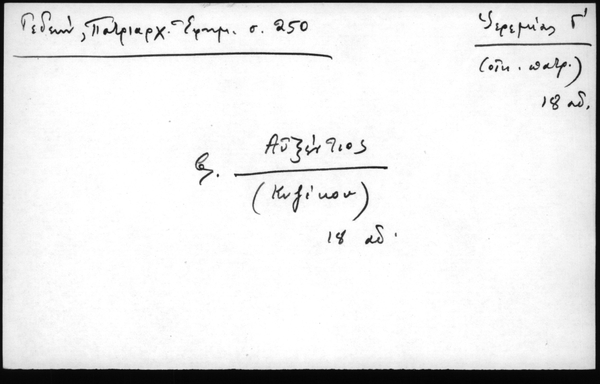 Γεδεών, Πατριαρχ. Εφημ. σ. 250
Ιερεμίας Γ'
(οικ. πατρ.)
18 αι.
βλ. Αυξέντιος
(Κυζίκου)
18 αι.